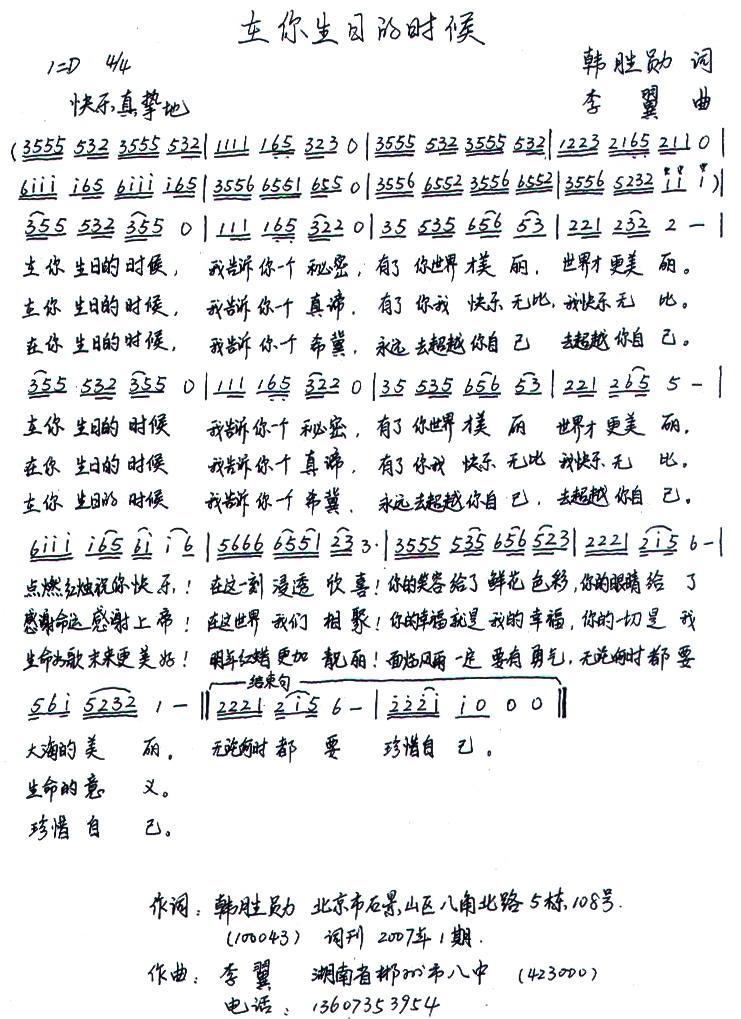 在你生日的时候
1=D 4/4
韩胜勋 词
快乐真挚地
李翼 曲
(3555 532 3555 532 | 1111 165 323 0 | 3555 532 3555 532 | 1223 2165 211 0 |
6iii i65 6iii i65 | 3556 6551 655 0 | 3556 6552 3556 6552 | 3556 5232 ii i) |
355 532 355 0 | 111 165 322 0 | 35 535 656 53 | 221 232 2 - |
在你 生日的 时候, 我告诉 你一个 秘密, 有了 你世界 才美 丽, 世界才 更美 丽。
在你 生日的 时候, 我告诉 你一个 真谛, 有了 你我 快乐 无比, 我快乐 无 比。
在你 生日的 时候, 我告诉 你一个 希冀, 永远 去超越 你自 己 去超越 你自 己。
355 532 355 0 | 111 165 322 0 | 35 535 656 53 | 221 265 5 - |
在你 生日的 时候 我告诉 你一个 秘密, 有了 你世界 才美 丽 世界才 更美 丽。
在你 生日的 时候 我告诉 你一个 真谛, 有了 你我 快乐 无比 我快乐 无 比。
在你 生日的 时候 我告诉 你一个 希冀, 永远 去超越 你自 己, 去超越 你自 己。
6iii i65 6i i 6 | 5666 6551 23 3· | 3555 535 656 523 | 2221 2i5 6 - |
点燃红烛祝你快乐! 在这一刻 浸透 欣喜! 你的笑容 给了 鲜花 色彩, 你的眼睛 给 了
感谢命运 感谢 上帝! 在这世界 我们 相聚! 你的幸福 就是 我的 幸福, 你的一切 是 我
生命如歌 未来更美好! 明年红蜡 更加 靓丽! 面临风雨 一定 要有 勇气, 无论何时 都 要
结束句
56i 5232 1 - ‖ 2221 2i5 6 - | 222i i0 0 0 ‖
大海的 美 丽。 无论何时 都 要 珍惜自 己。
生命的 意 义。
珍惜 自 己。
作词: 韩胜勋 北京市石景山区八角北路5栋108号.
(100043) 词刊 2007年1期.
作曲: 李翼 湖南省郴州市八中 (423000)
电话: 13607353954